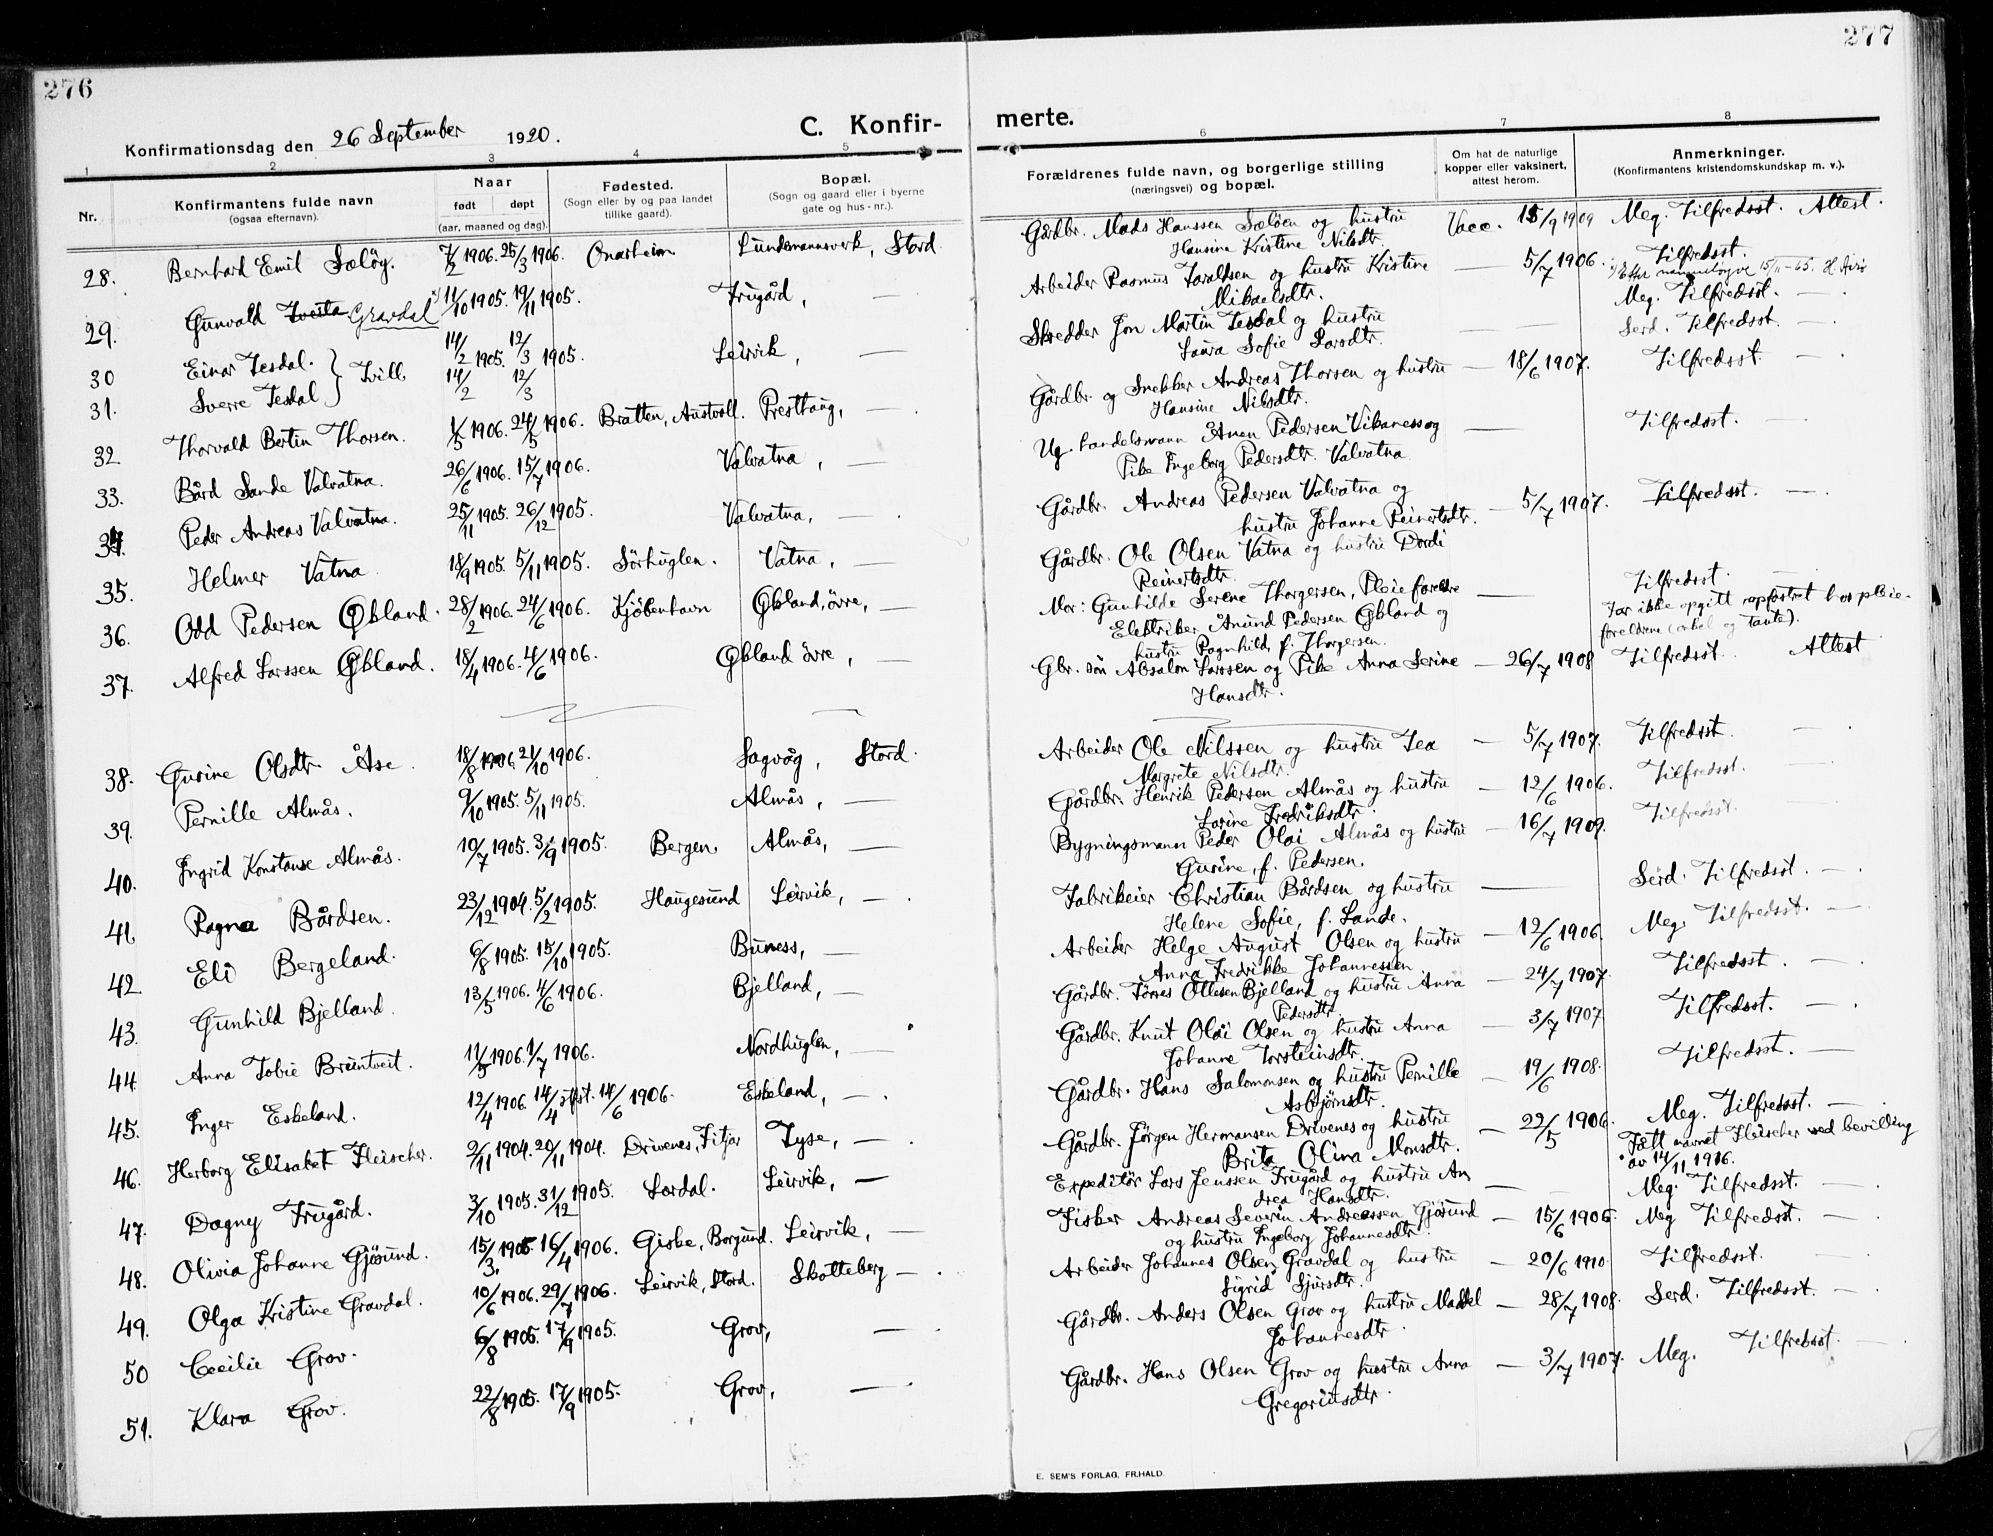 276
277
Konfirmationsdag den 26 September 1920.
C. Konfir-
merte.
1 2 3 4 5
6 7 8
Nr.
Konfirmantens fulde navn
(ogsaa efternavn).
Naar
født døpt
(aar, maaned og dag).
Fødested.
(Sogn eller by og paa landet
tillike gaard).
Bopæl.
(Sogn og gaard eller i byerne
gate og hus-nr.).
Forældrenes fulde navn, og borgerlige stilling
(næringsvei) og bopæl.
Om hat de naturlige
kopper eller vaksinert,
attest herom.
Anmerkninger.
(Konfirmantens kristendomskundskap m. v.).
28. Bernhard Emil Sæløy. 7/2 1906. 25/3 1906. Onarheim Lundemannsverk, Stord
29. Gunvald Tveita Gravdal x) 11/10 1905. 19/11 1905. Frugård, —
30 Einar Tesdal. } Tvill. 14/2 1905. 12/3 1905. Leirvik, —
31. Sverre Tesdal } 14/2 12/3
32 Thorvald Bertin Thorsen. 1/3 1906. 24/5 1906. Bratten, Austvoll. Presthaug, —
33. Bård Sande Valvatna. 26/6 1906. 15/7 1906. Valvatna, —
34. Peder Andreas Valvatna. 25/11 1905. 26/12 1905. Valvatna, — .
35. Helmer Vatna 18/9 1905. 5/11 1905. Sörhuglen. Vatna, —
36. Odd Pedersen Øbland. 28/2 1906. 24/6 1906. Kjøbenhavn Øbland, övre, —
37. Alfred Larssen Øbland. 18/4 1906. 4/6 1906. Øbland övre, —
38. Gurine Olsdtr Åse 18/8 1906. 21/10 1906. Sagvåg, Stord.
39. Pernille Almås. 9/10 1905. 5/11 1905. Almås, —
40. Ingrid Konstanse Almås. 10/7 1905. 3/9 1905. Bergen Almås, —
41. Ragna Bårdsen. 23/12 1904. 5/2 1905. Haugesund Leirvik, — .
42. Eli Bergeland. 6/8 1905. 15/10 1905. Buness, —
43. Gunhild Bjelland. 13/5 1906. 4/6 1906. Bjelland, —
44 Anna Tobie Bruntveit. 11/5 1906. 1/7 1906. Nordhuglen, —
45. Inger Eskeland. 12/4 1906. 14/4 stfst. 14/6 1906. Eskeland, — .
46. Herborg Elisabet Fleischer. 2/11 1904. 20/11 1904. Drivenes, Fitjar Tyse, — .
47. Dagny Frugård. 3/10 1905. 31/12 1905. Lærdal. Leirvik, —
48. Olivia Johanne Gjøsund. 15/3 1905 16/4 1906. Giske, Borgund. Leirvik, —
49. Olga Kristine Gravdal. 10/6 1906. 29/7 1906. Leirvik, Stord. Skotteberg — .
50 Cecilie Grov. 6/8 1905. 17/9 1905. Grov, — .
51. Klara Grov. 22/8 1905. 17/9 1905. Grov, — .
Gårdbr. Mads Hanssen Sæløen og hustru Vacc. 15/9 1909 Meg. Tilfredsst. Attest.
Hansine Kristine Nilsdtr.
Arbeider Rasmus Taraldsen og hustru Kristine — 5/7 1906. Tilfredsst.
x) Etter 15/11-65.
Mikaelsdtr. Meg. Tilfredsst. — .
Skredder Jon Martin Tesdal og hustru — Serd. Tilfredsst. — .
Laura Sofie Larsdtr.
Gårdbr. og Snekker Andreas Thorsen og hustru — 18/6 1907. Tilfredsst. — .
Hansine Nilsdtr.
Ug. handelsmann Ånen Pedersen Vikaness og — Tilfredsst. — .
Pike Ingeborg Pedersdtr. Valvatna
Gårdbr. Andreas Pedersen Valvatna og — 5/7 1907. Tilfredsst. — .
hustru Johanne Reinertsdtr.
Gårdbr. Ole Olsen Vatna og hustru Dordi
Reinertsdtr. Tilfredsst. —
Mor: Gunhilde Serene Thorgersen, Pleieforeldre — Far ikke opgitt opfostret hos pleie-
Elektriker Ånund Pedersen Øbland og foreldrene (onkel og Tante).
hustru Ragnhild f. Thorgersen.
Gbr. sön Absalon Larssen og Pike Anna Serine — 26/7 1908 Tilfredsst. Attest
Hansdtr.
Arbeider Ole Nilssen og hustru Tea — 5/7 1907. Tilfredsst — .
Margrete Nilsdtr.
Gårdbr. Henrik Pedersen Almås og hustru — 12/6 1906. Tilfredsst. —
Larine Fredriksdtr.
Bygningsmann Peder Olai Almås og hustru — 16/7 1909. Tilfredsst. —
Gurine, f. Pedersen.
Fabrikeier Christian Bårdsen og hustru — Serd. Tilfredsst. — .
Helene Sofie, f. Sande.
Arbeider Helge August Olsen og hustru — 12/6 1906. Meg. Tilfredsst. —
Anna Fredrikke Johannessen
Gårdbr. Tørres Ottesen Bjelland og hustru Anna — 24/7 1907. Tilfredsst. — .
Pedersdtr.
Gårdbr. Knut Olai Olsen og hustru Anna — 3/7 1907 Tilfredsst. — .
Johanne Torsteinsdtr.
Gårdbr. Hans Salomonsen og hustru Pernille — 19/6 1908. Tilfredsst. — .
Asbjørnsdtr.
Gårdbr. Jørgen Hermansen Drivenes og hustru — 22/5 1906. Meg. Tilfredsst. —
Brita Olina Monsdtr. Fått navnet Fleischer ved bevilling
av 14/11 1916.
Expeditör Lars Jenssen Frugård og hustru An — Meg. Tilfredsst. — .
drea Hansdtr.
Fisker Andreas Severin Andreassen Gjøsund — 15/6 1906. Meg Tilfredsst. — .
og hustru Ingeborg Johannesdtr.
Arbeider Johannes Olsen Gravdal og hustru — 20/6 1910. Tilfredsst. — .
Sigrid Sjursdtr.
Gårdbr. Anders Olsen Grov og hustru Maddel — 28/7 1908. Serd. Tilfredsst. — .
Johannesdtr.
Gårdbr. Hans Olsen Grov og hustru Anna — 3/7 1907. Meg. Tilfredsst. — .
Gregoriusdtr.
E. SEM'S FORLAG, FR.HALD.